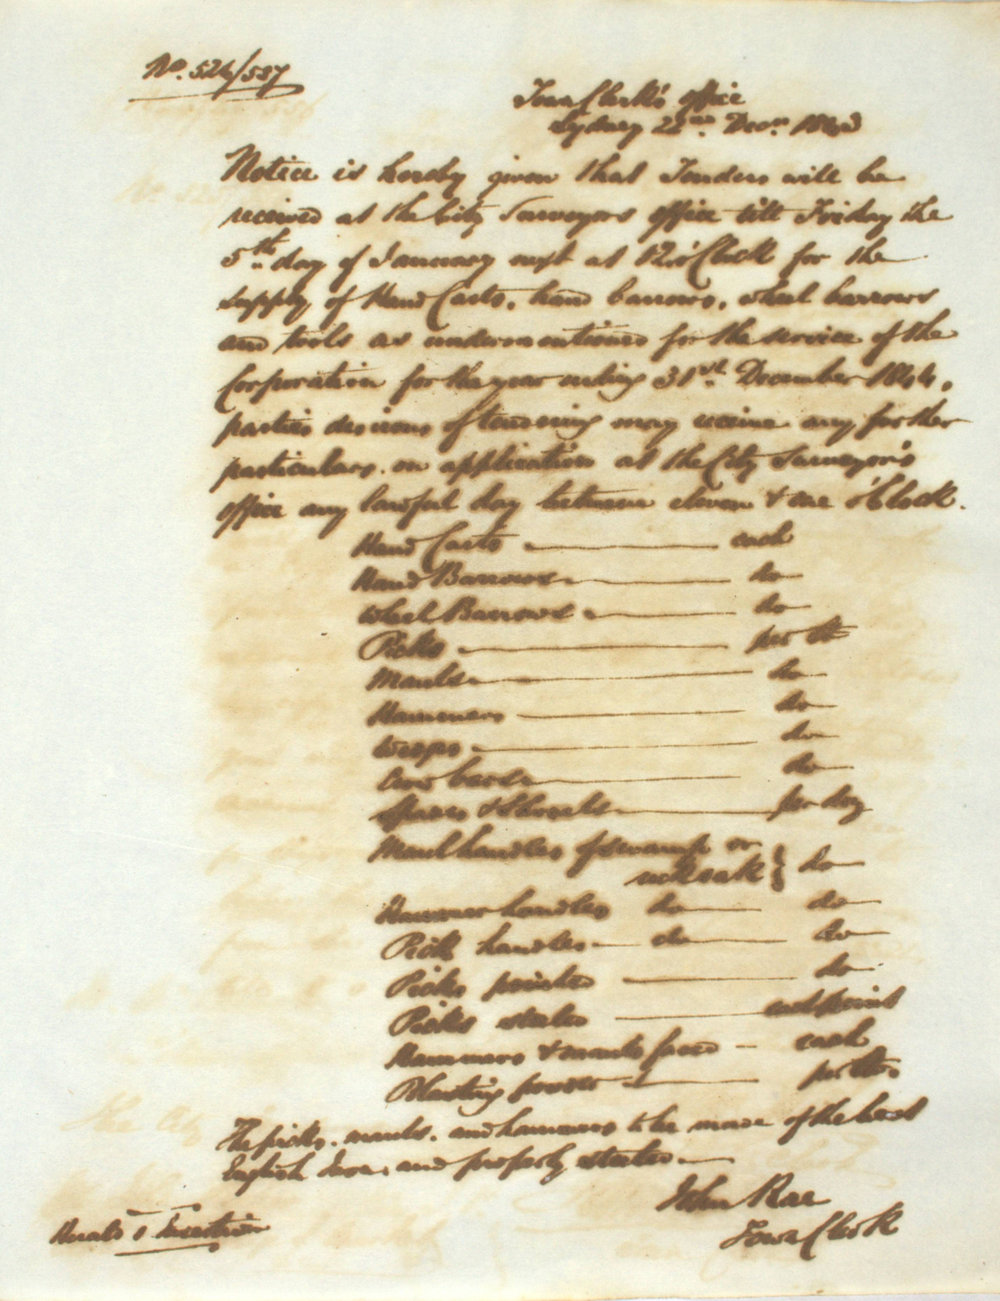 No. 524/557
Town Clerk's Office
Sydney 22nd. Decr. 1843
Notice is hereby given that Tenders will be
received at the City Surveyors office till Friday the
5th. day of January next at 12 o'Clock for the
supply of Hand Carts, hand barrows, wheel barrows
and tools as undermentioned for the service of the
Corporation for the year ending 31st. December 1844,
parties desirous of tendering may receive any further
particulars on application at the City Surveyor's
office any lawful day between eleven & one o'Clock.
Hand Carts — each
Hand Barrows — do
Wheel Barrows — do
Picks — per lb
Mauls — do
Hammers — do
Wedges — do
Crow bars — do
Spades & Shovels — per doz
Maul handles of swamp or
oak } do
Hammer handles do — do
Pick handles — do — do
Picks pointed — do
Picks steeled — each point
Hammers & mauls faced — each
Blasting powder — per lb.
The picks, mauls, and hammers to be made of the best
English Iron, and properly steeled. —
John Rae
Town Clerk
Herald 3 Insertion